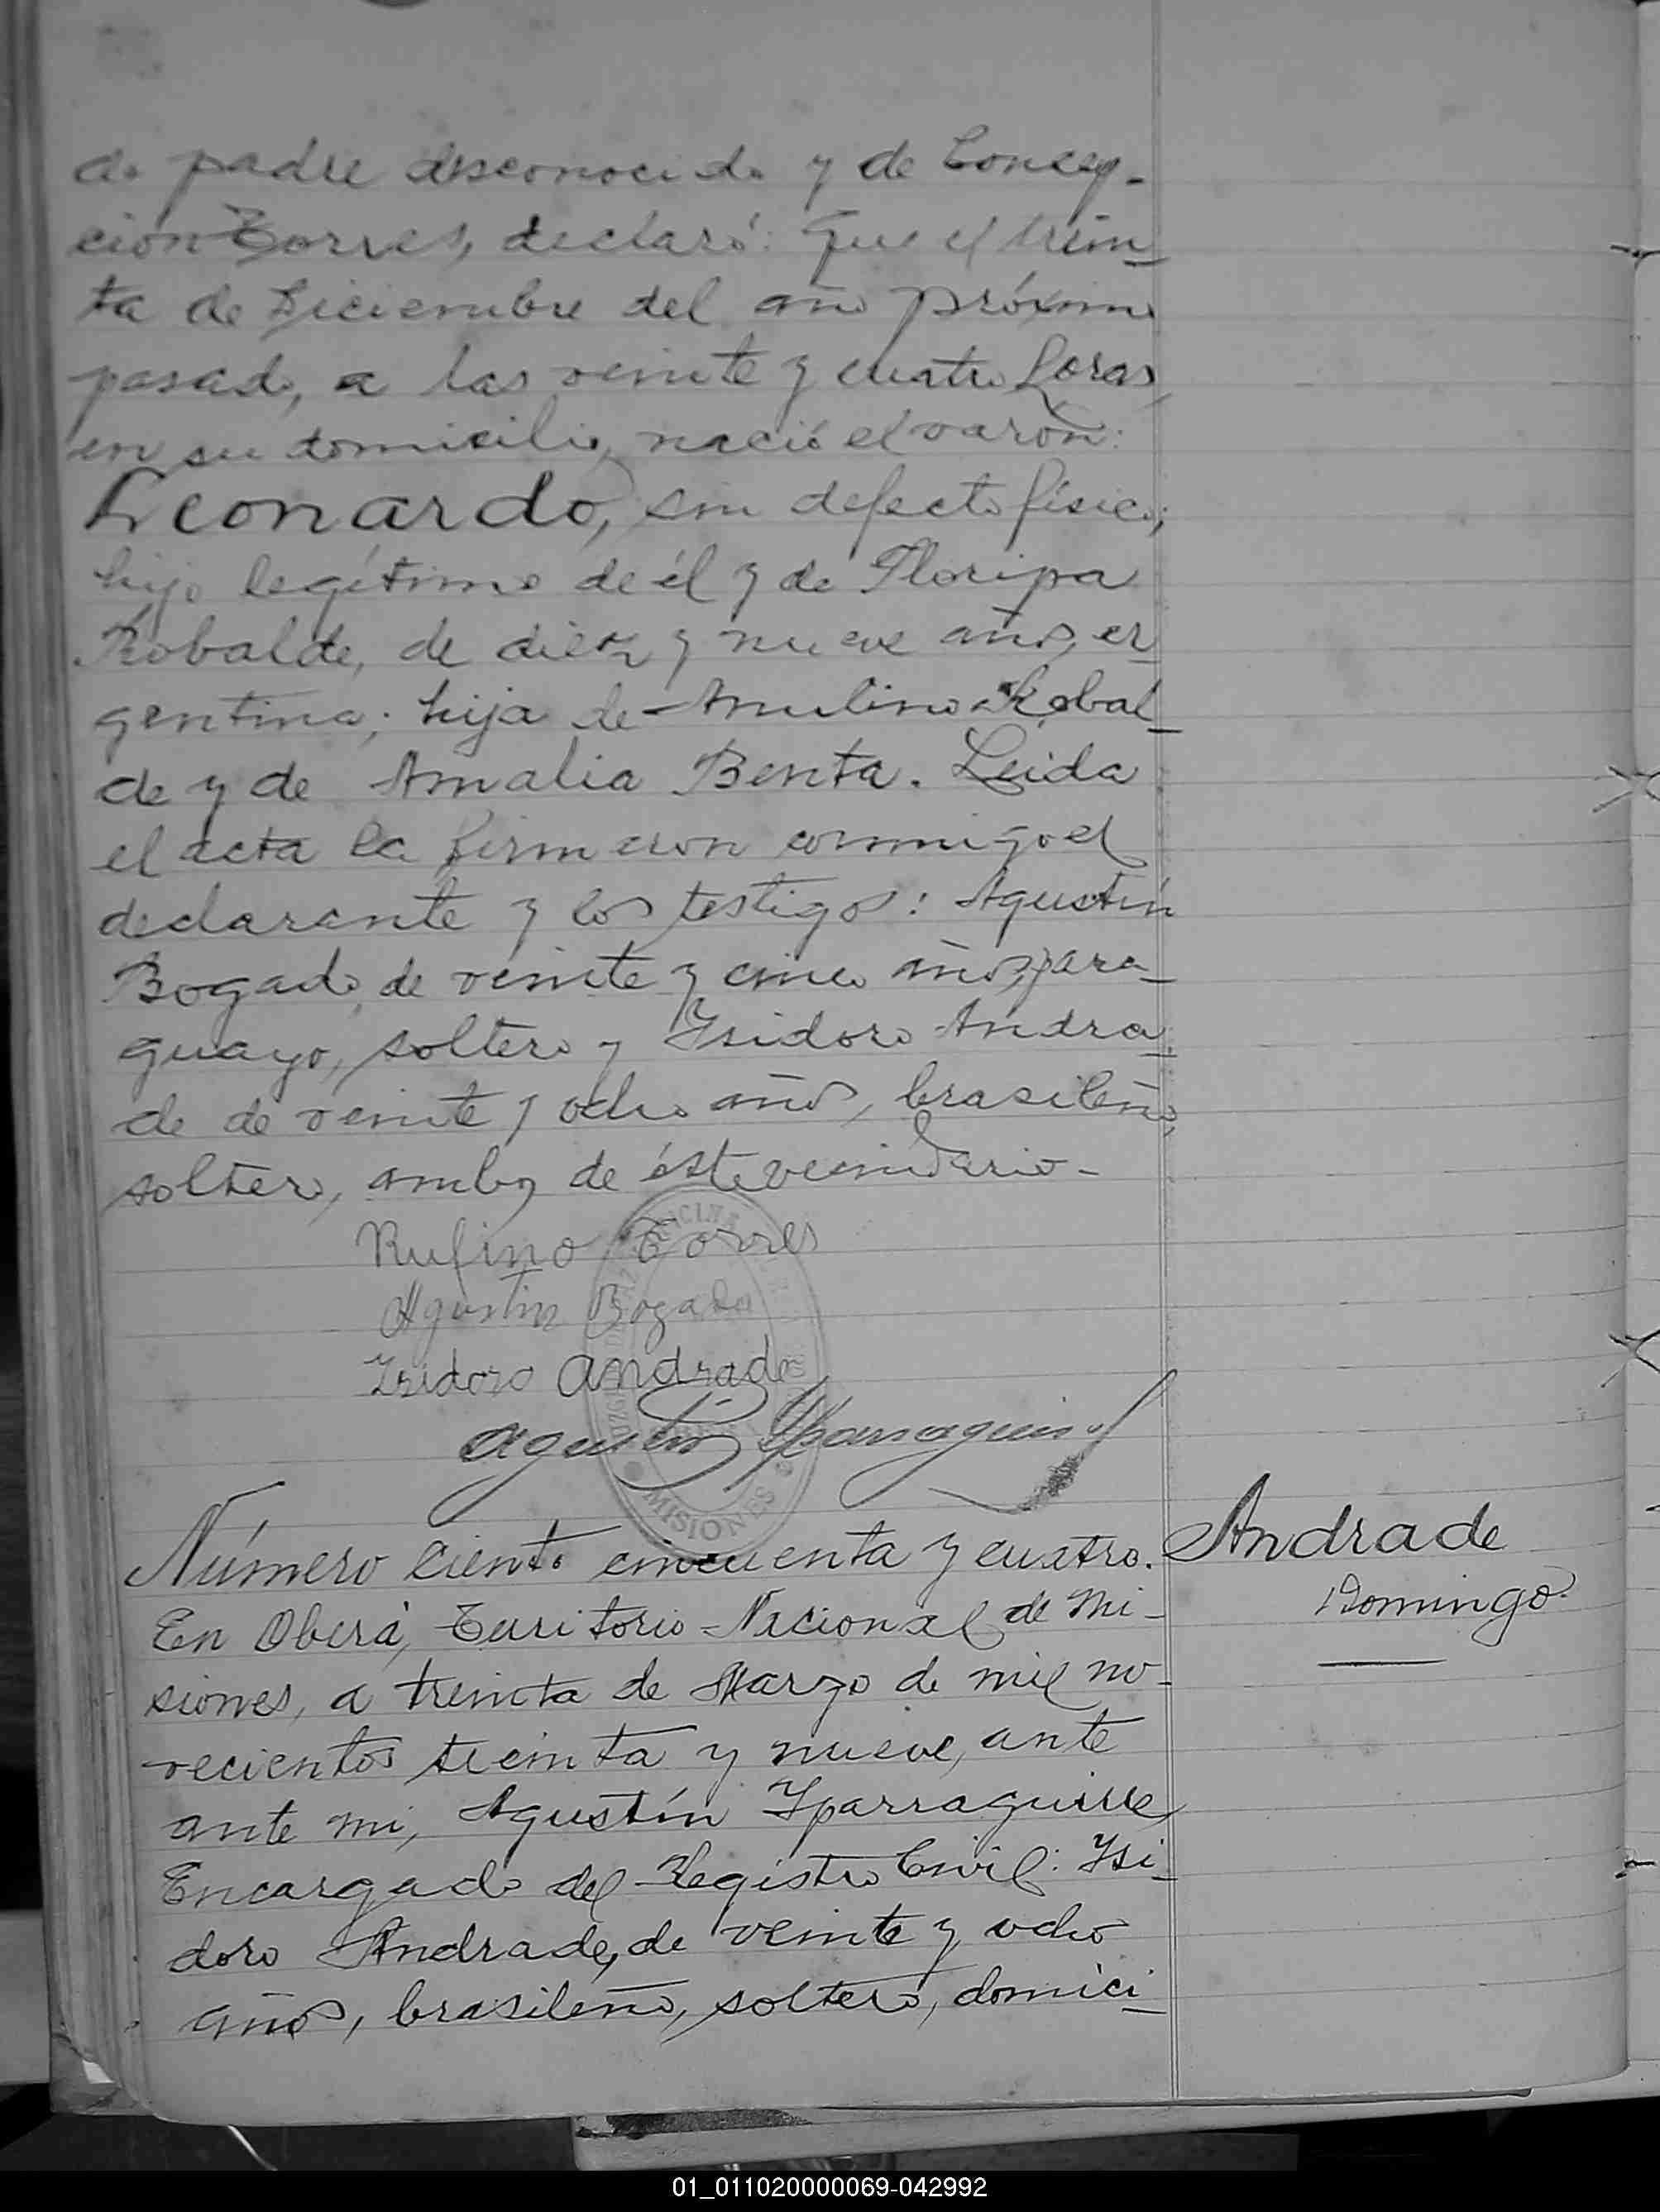 de padre desconocido y de Concep-
ción Torres, declaró: Que el trein-
ta de Diciembre del año próximo
pasado, a las veinte y cuatro horas,
en su domicilio, nació el varón:
Leonardo, sin defecto físico;
hijo legítimo de él y de Floripa
Robalde, de diez y nueve años, ar-
gentina; hija de Anulino Robal-
de y de Amalia Benta. Leida
el acta la firmaron conmigo el
declarante y los testigos: Agustín
Bogado, de veinte y cinco años, para-
guayo, soltero y Isidoro Andra-
de de veinte y ocho años, brasileño,
soltero, ambos de éste vecindario-
Rufino Torres
Agustin Bogado
Isidoro Andrade
Agustín Yparraguirre
MISIONES
Número ciento cincuenta y cuatro.
Andrade
Domingo.
En Oberá, Territorio Nacional de Mi-
siones, a treinta de Marzo de mil no-
vecientos treinta y nueve, ante
ante mi, Agustín Yparraguirre
Encargado del Registro Civil: Isi-
doro Andrade, de veinte y ocho
años, brasileño, soltero, domici-
01_011020000069-042992